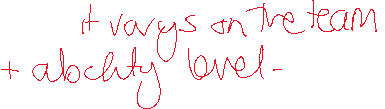 it varys on the team
+ abochity level.